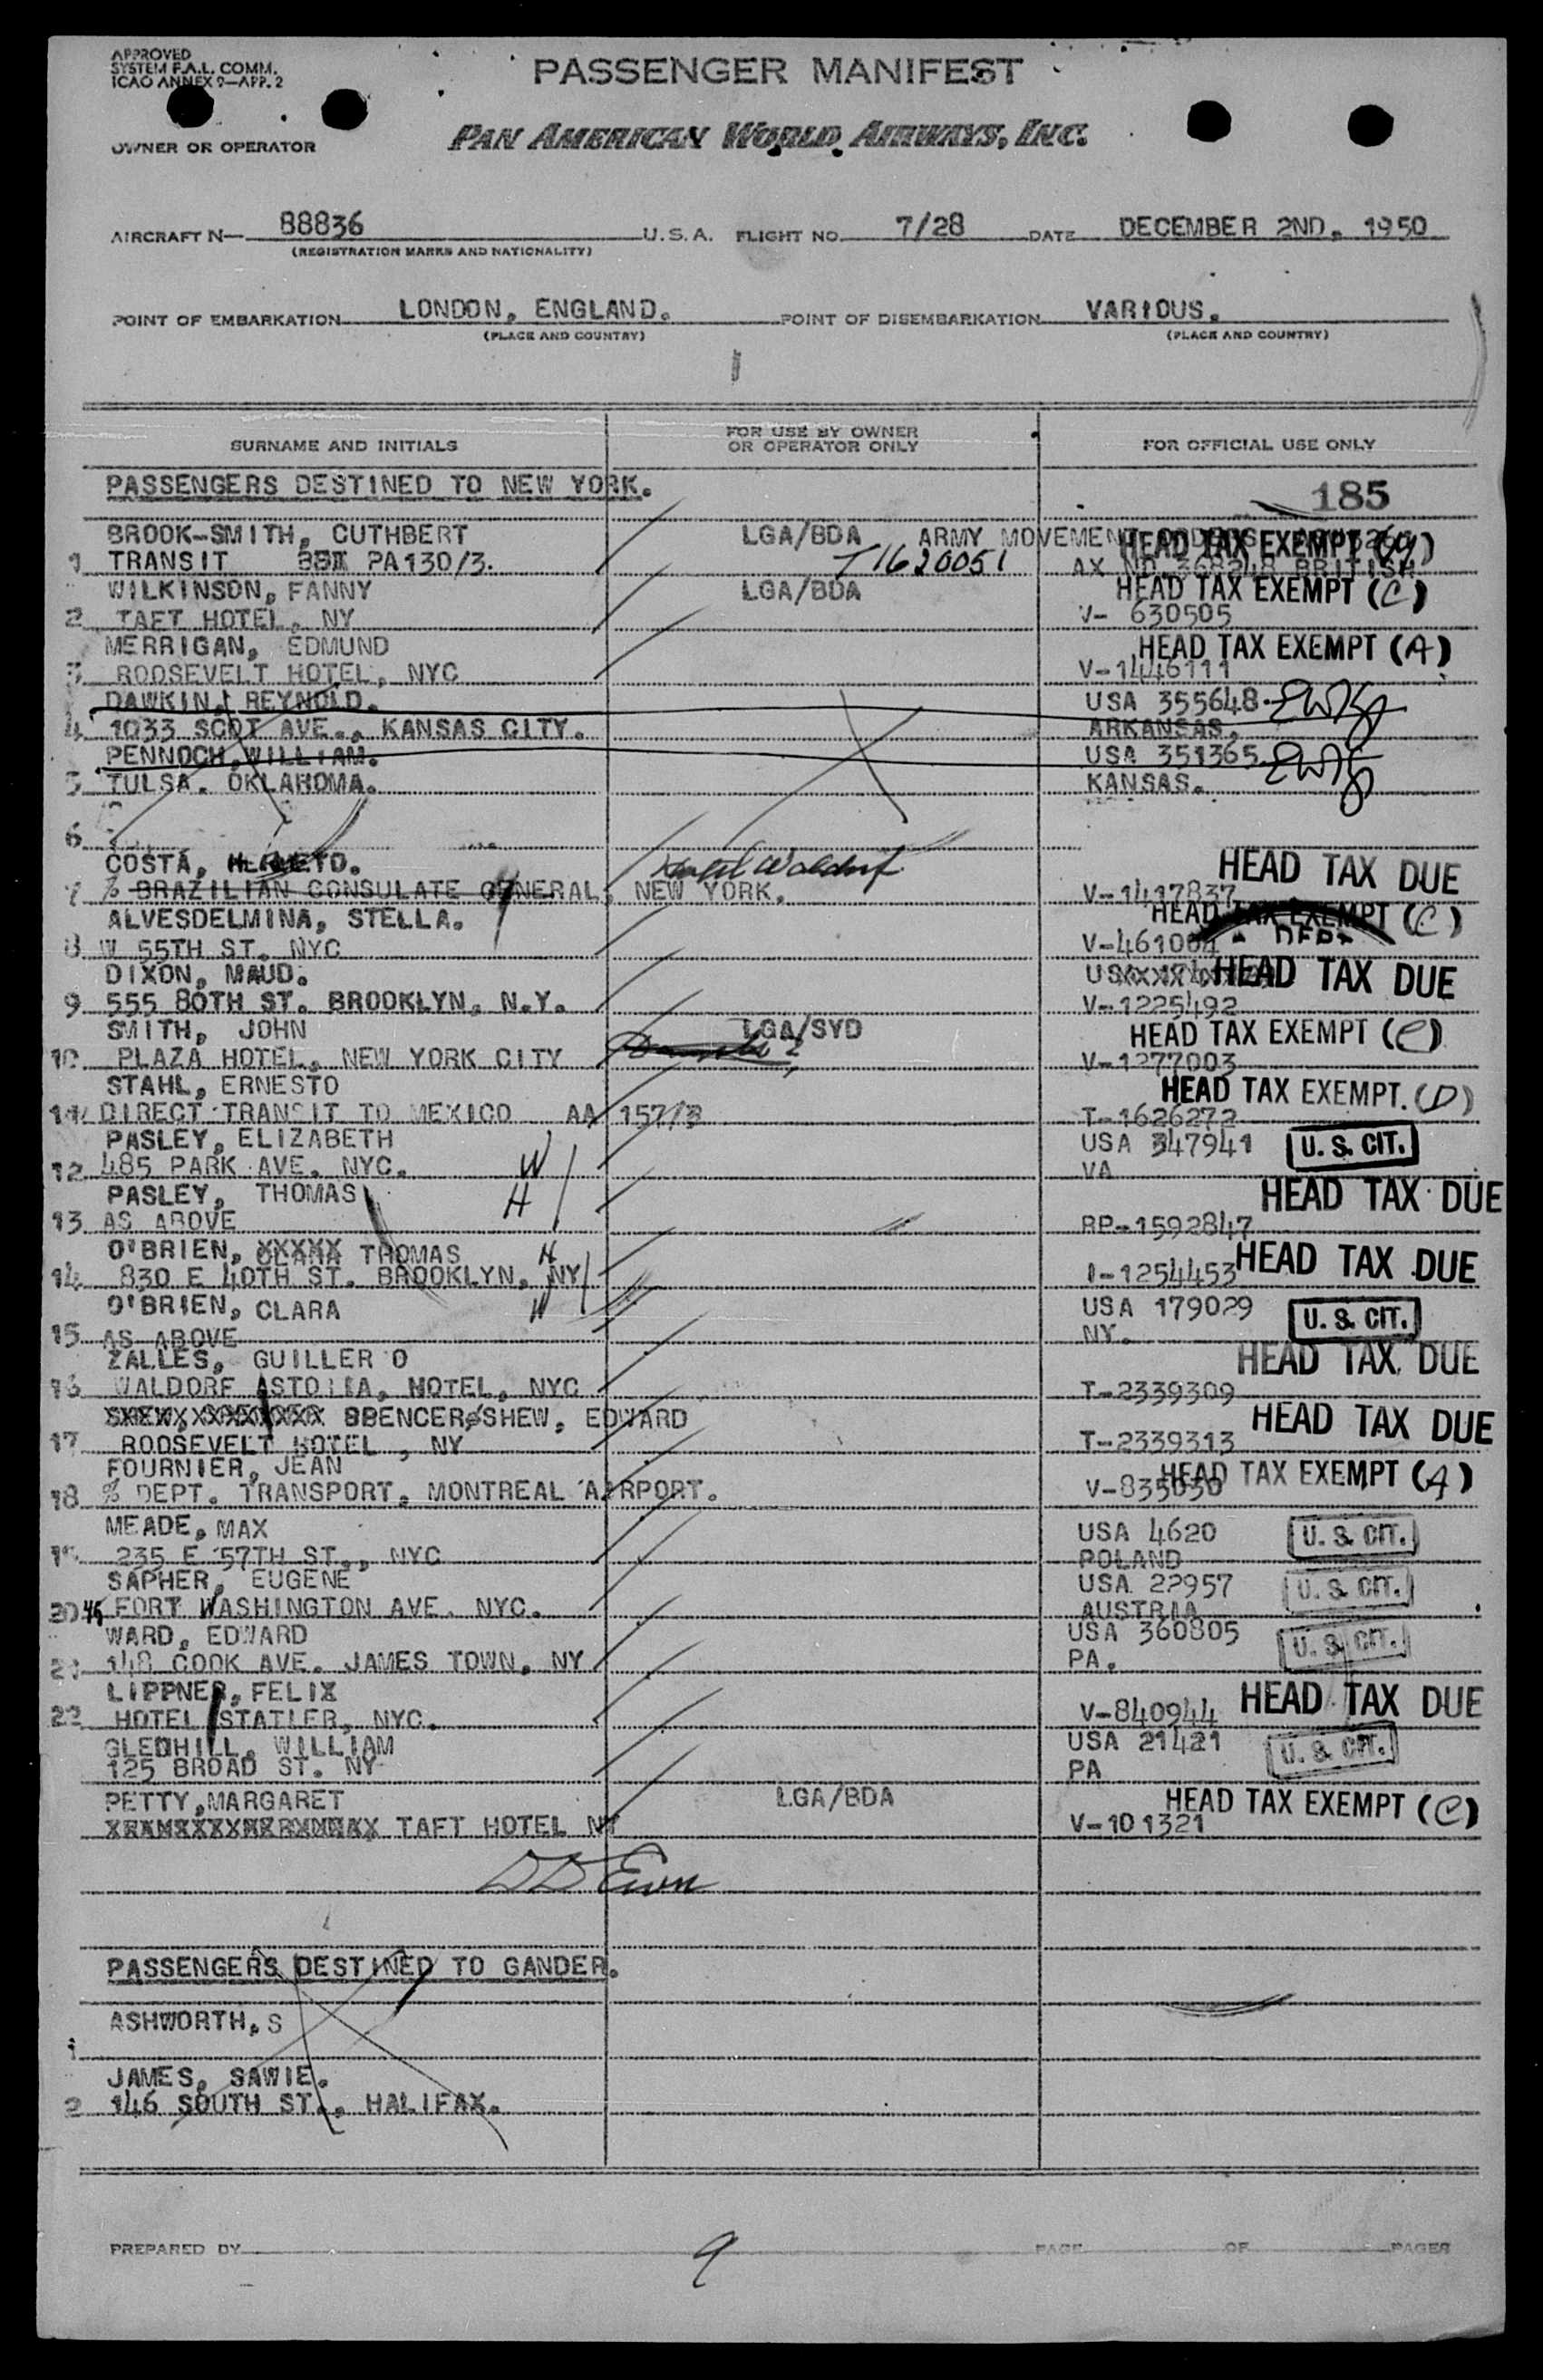 APPROVED
SYSTEM F.A.L. COMM.
ICAO ANNEX 9—APP. 2
PASSENGER MANIFEST
OWNER OR OPERATOR
PAN AMERICAN WORLD AIRWAYS, INC.
AIRCRAFT N— 88836 U.S.A. FLIGHT NO. 7/28 DATE DECEMBER 2ND. 1950
(REGISTRATION MARKS AND NATIONALITY)
POINT OF EMBARKATION LONDON, ENGLAND. POINT OF DISEMBARKATION VARIOUS.
(PLACE AND COUNTRY) (PLACE AND COUNTRY)
SURNAME AND INITIALS FOR USE BY OWNER OR OPERATOR ONLY FOR OFFICIAL USE ONLY
PASSENGERS DESTINED TO NEW YORK. 185
BROOK-SMITH, CUTHBERT LGA/BDA ARMY MOVEMENT HEAD TAX EXEMPT
1 TRANSIT PA130/3. T1620051 AX NO. 368248 BRITISH
WILKINSON, FANNY LGA/BDA HEAD TAX EXEMPT (C)
2 TAFT HOTEL, NY V- 630505
MERRIGAN, EDMUND HEAD TAX EXEMPT (A)
3 ROOSEVELT HOTEL, NYC V-1446111
DAWKIN, REYNOLD. USA 355648
4 1033 SCOT AVE., KANSAS CITY. ARKANSAS.
PENNOCH, WILLIAM. USA 351365
5 TULSA. OKLAHOMA. KANSAS.
6
COSTA, Hotel Waldorf HEAD TAX DUE
7 % BRAZILIAN CONSULATE GENERAL, NEW YORK. V-1417837
ALVESDELMINA, STELLA. HEAD TAX EXEMPT (C)
8 W 55TH ST. NYC V-461004
DIXON, MAUD. HEAD TAX DUE
9 555 80TH ST. BROOKLYN, N.Y. V-1225492
SMITH, JOHN LGA/SYD HEAD TAX EXEMPT (C)
10 PLAZA HOTEL, NEW YORK CITY V-1277003
STAHL, ERNESTO HEAD TAX EXEMPT. (D)
11 DIRECT TRANSIT TO MEXICO AA 157/3 T-1626272
PASLEY, ELIZABETH W USA 347941 U.S. CIT.
12 485 PARK AVE. NYC. VA
PASLEY, THOMAS H HEAD TAX DUE
13 AS ABOVE RP-1592847
O'BRIEN, THOMAS H HEAD TAX DUE
14 830 E 40TH ST. BROOKLYN, NY I-1254453
O'BRIEN, CLARA W USA 179029 U.S. CIT.
15 AS ABOVE NY.
ZALLES, GUILLER O HEAD TAX DUE
16 WALDORF ASTORIA, HOTEL, NYC T-2339309
SPENCER SHEW, EDWARD HEAD TAX DUE
17 ROOSEVELT HOTEL, NY T-2339313
FOURNIER, JEAN HEAD TAX EXEMPT (A)
18 % DEPT. TRANSPORT. MONTREAL AIRPORT. V-835030
MEADE, MAX USA 4620 U.S. CIT.
19 235 E 57TH ST., NYC POLAND
SAPHER, EUGENE USA 22957 U.S. CIT.
20 45 FORT WASHINGTON AVE. NYC. AUSTRIA
WARD, EDWARD USA 360805 U.S. CIT.
21 148 COOK AVE. JAMES TOWN, NY PA.
LIPPNER, FELIX HEAD TAX DUE
22 HOTEL STATLER, NYC. V-840944
GLEDHILL, WILLIAM USA 21421 U.S. CIT.
125 BROAD ST. NY PA
PETTY, MARGARET LGA/BDA HEAD TAX EXEMPT (C)
TAFT HOTEL NY V-101321
PASSENGERS DESTINED TO GANDER.
ASHWORTH, S
1
JAMES, SAWIE.
2 146 SOUTH ST., HALIFAX.
PREPARED BY 9 PAGE OF PAGES